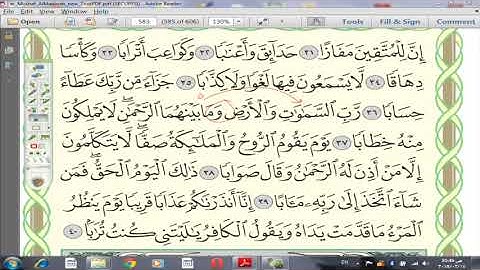 Mushaf_AlMadinah_new_TruePDF.pdf (SECURED) - Adobe Reader
583 (585 of 606) 130%
Tools Fill & Sign Comment
إِنَّ لِلْمُتَّقِينَ مَفَازًا ٣١ حَدَآئِقَ وَأَعْنَٰبًا ٣٢ وَكَوَاعِبَ أَتْرَابًا ٣٣ وَكَأْسًا
دِهَاقًا ٣٤ لَّا يَسْمَعُونَ فِيهَا لَغْوًا وَلَا كِذَّٰبًا ٣٥ جَزَآءً مِّن رَّبِّكَ عَطَآءً
حِسَابًا ٣٦ رَّبِّ ٱلسَّمَٰوَٰتِ وَٱلْأَرْضِ وَمَا بَيْنَهُمَا ٱلرَّحْمَٰنِ ۖ لَا يَمْلِكُونَ
مِنْهُ خِطَابًا ٣٧ يَوْمَ يَقُومُ ٱلرُّوحُ وَٱلْمَلَٰٓئِكَةُ صَفًّا ۖ لَّا يَتَكَلَّمُونَ
إِلَّا مَنْ أَذِنَ لَهُ ٱلرَّحْمَٰنُ وَقَالَ صَوَابًا ٣٨ ذَٰلِكَ ٱلْيَوْمُ ٱلْحَقُّ ۖ فَمَن
شَآءَ ٱتَّخَذَ إِلَىٰ رَبِّهِۦ مَـَٔابًا ٣٩ إِنَّآ أَنذَرْنَٰكُمْ عَذَابًا قَرِيبًا يَوْمَ يَنظُرُ
ٱلْمَرْءُ مَا قَدَّمَتْ يَدَاهُ وَيَقُولُ ٱلْكَافِرُ يَٰلَيْتَنِى كُنتُ تُرَٰبًۢا ٤٠
EN